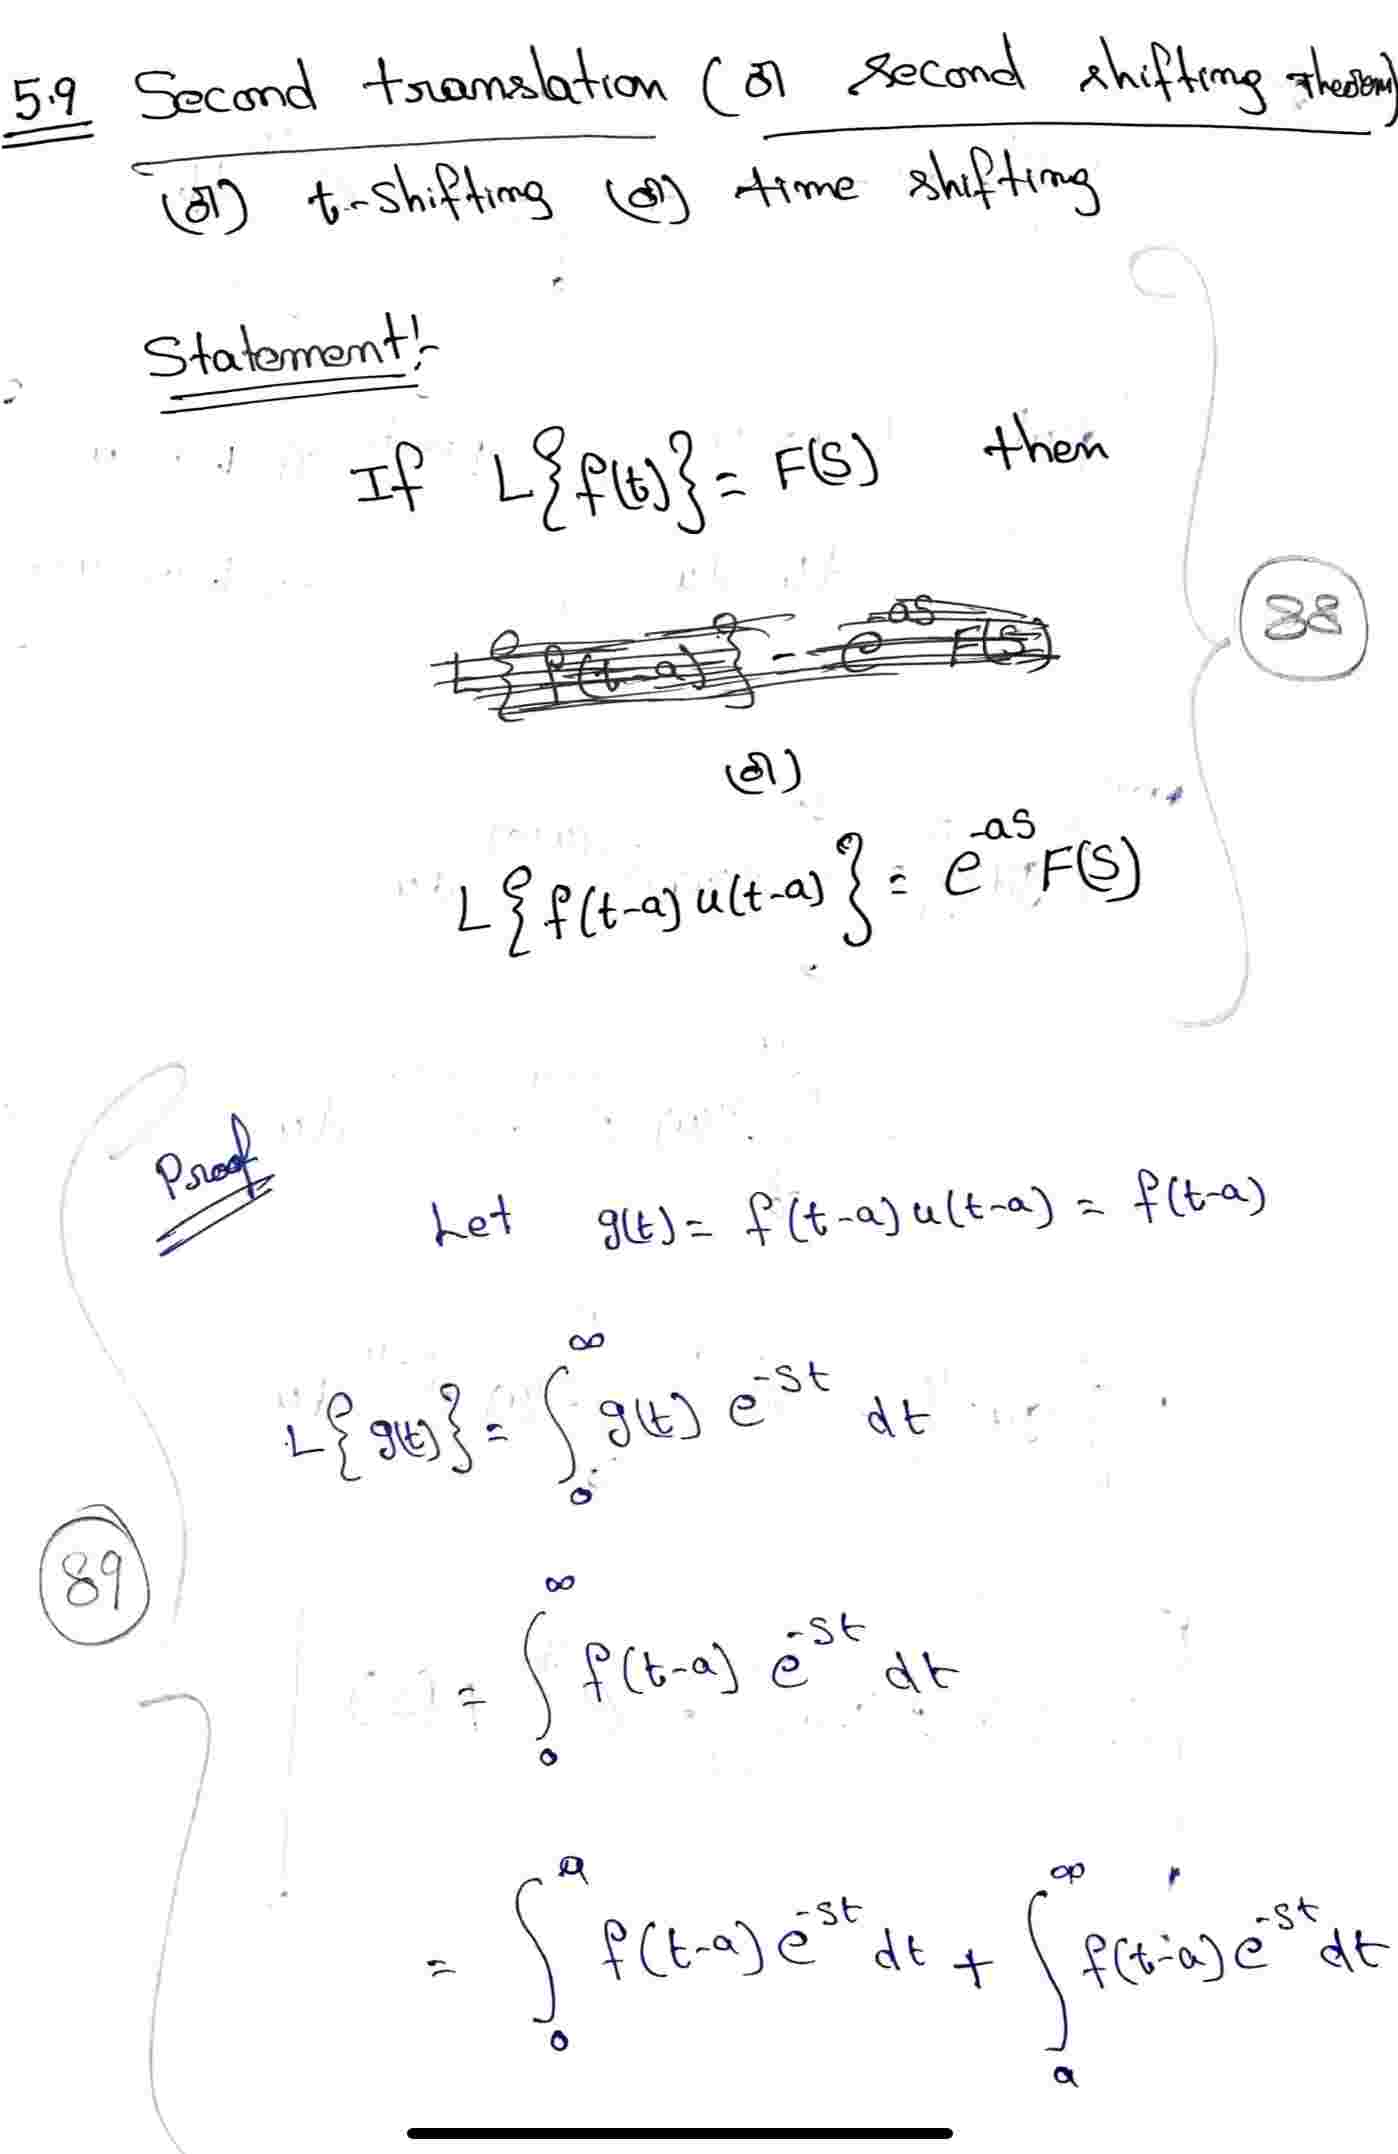 5.9 Second translation (or second shifting theorem)
(or) t-shifting (or) time shifting
Statement:-
If L{f(t)} = F(S) then
L{f(t-a)} = e^-as F(S)
(or)
L{f(t-a) u(t-a)} = e^-as F(S)
Proof
Let g(t) = f(t-a) u(t-a) = f(t-a)
L{g(t)} = ∫_0^∞ g(t) e^-st dt
89
= ∫_0^∞ f(t-a) e^-st dt
= ∫_0^a f(t-a) e^-st dt + ∫_a^∞ f(t-a) e^-st dt